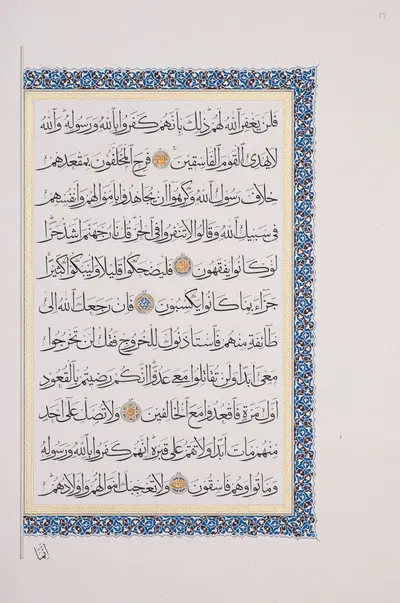 ٢٦
فلن يغفر الله لهم ذلك بأنهم كفروا بالله ورسوله والله
لا يهدي القوم الفاسقين فرح المخلفون بمقعدهم
خلاف رسول الله وكرهوا أن يجاهدوا بأموالهم وأنفسهم
في سبيل الله وقالوا لا تنفروا في الحر قل نار جهنم أشد حرا
لو كانوا يفقهون فليضحكوا قليلا وليبكوا كثيرا
جزاء بما كانوا يكسبون فإن رجعك الله إلى
طائفة منهم فاستأذنوك للخروج فقل لن تخرجوا
معي أبدا ولن تقاتلوا معي عدوا إنكم رضيتم بالقعود
أول مرة فاقعدوا مع الخالفين ولا تصل على أحد
منهم مات أبدا ولا تقم على قبره إنهم كفروا بالله ورسوله
وماتوا وهم فاسقون ولا تعجبك أموالهم وأولادهم
إنما